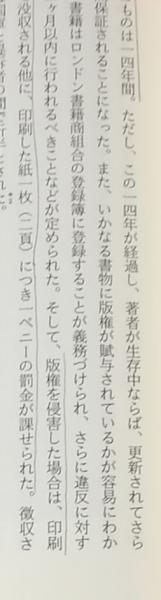 ものは一四年間。ただし、この一四年が経過し、著者が生存中ならば、更新されてさら
保証されることになった。また、いかなる書物に版権が賦与されているかが容易にわか
書籍はロンドン書籍商組合の登録簿に登録することが義務づけられ、さらに違反に対す
ヶ月以内に行われるべきことなどが定められた。そして、版権を侵害した場合は、印刷
没収される他に、印刷した紙一枚（二頁）につき一ペニーの罰金が課せられた。徴収さ